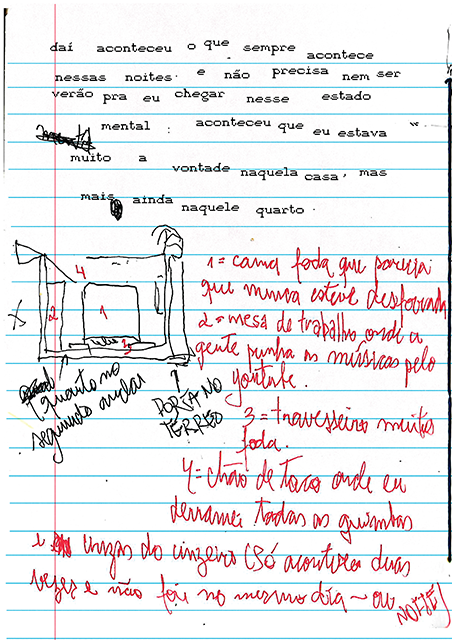 daí aconteceu o que sempre acontece
nessas noites. e não precisa nem ser
verão pra eu chegar nesse estado
mental : aconteceu que eu estava
muito a vontade naquela casa, mas
mais ainda naquele quarto.
1 = cama foda que parecia
que nunca esteve desforrada
2 = mesa de trabalho onde a
gente punha as músicas pelo
youtube.
3 = travesseiro muito
foda.
4 = chão de taco onde eu
derramei todas as guimbas
e cinzas do cinzeiro (só aconteceu duas
vezes e não foi no mesmo dia ~ ou
NOITE)
4
1
2
3
quarto no
segundo andar
PORTA NO
TÉRREO